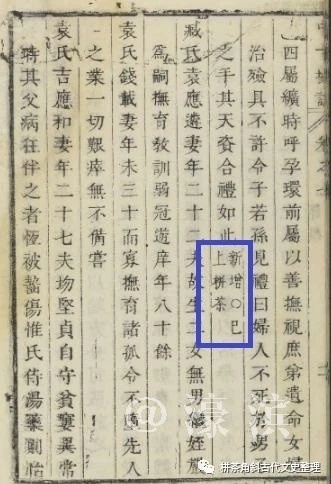 中十場誌
四屬纊時呼孕環前屬以善撫視庶弟遺命女婦
治殮具不許令子若孫見禮曰婦人不死於男
之手其天資合禮如此 新增○已上栟茶
臧氏袁應遴妻年二十二夫故生二女無男繼姪應
為嗣撫育教訓弱冠遊庠年八十餘
袁氏錢載妻年未三十而寡撫育諸孤令不墮先人
之業一切艱瘁無不備嘗
袁氏吉應和妻年二十七夫歿堅貞自守貧窶異常
時其父病在伴之者恆被齧傷惟氏侍湯藥
栟茶角斜古代文史整理